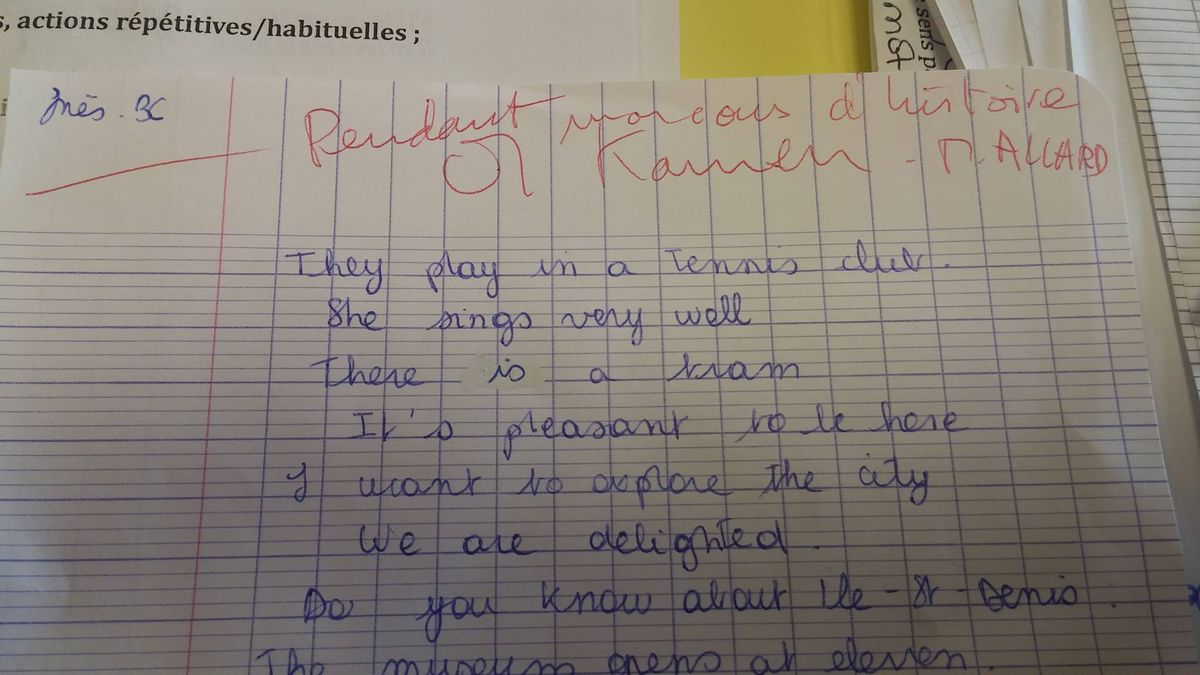 s, actions répétitives/habituelles ;
sens p
Inès. 3C
Pendant mon cours d'histoire
Kamen - M. ALLARD
They play in a tennis club.
She sings very well
There is a tram
It's pleasant to be here
I want to explore the city
We are delighted.
Do you know about Ile-St-Denis.
The museum opens at eleven.